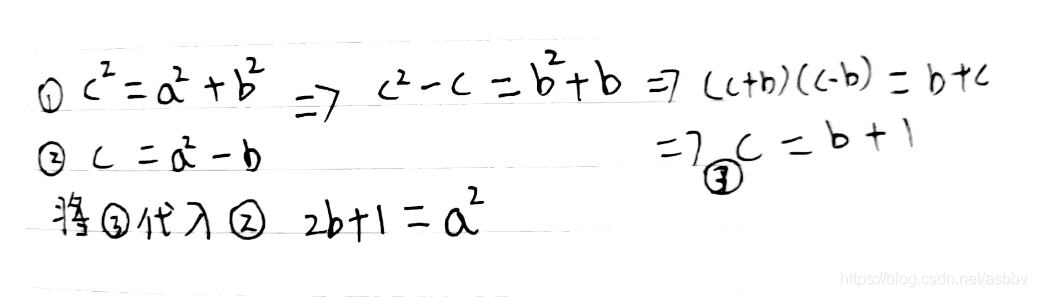 ① c² = a² + b² => c² - c = b² + b => (c+b)(c-b) = b+c
② c = a² - b => ③ c = b + 1
将③代入② 2b+1 = a²
https://blog.csdn.net/asbbv